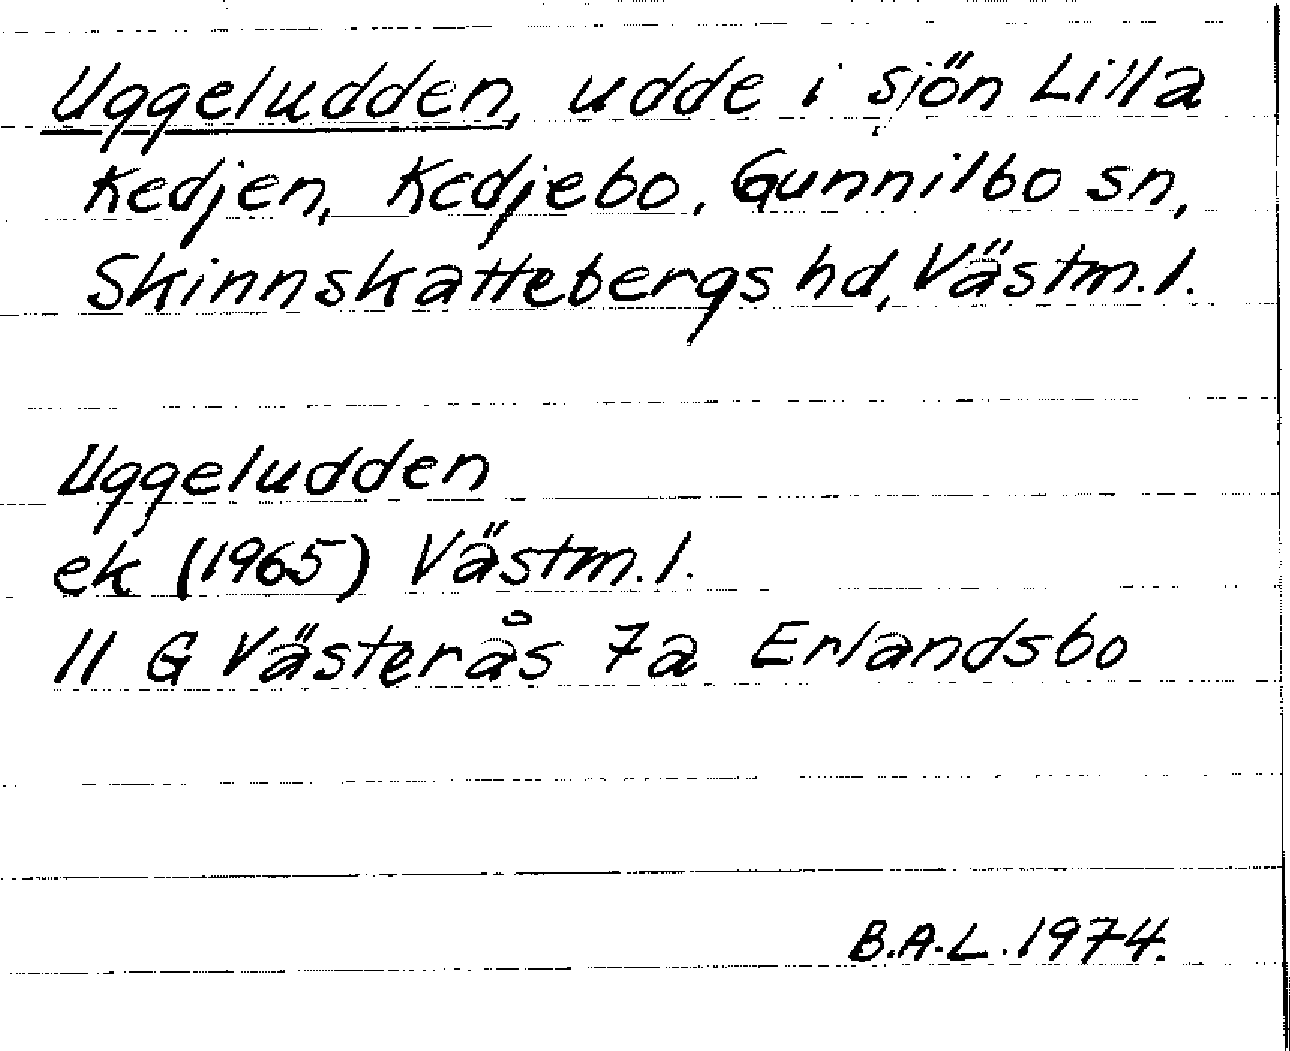 Uggeludden, udde i sjön Lilla
Kedjen, Kedjebo, Gunnilbo sn,
Skinnskattebergs hd, Västm. l.
Uggeludden
ek (1965) Västm. l.
11 G Västerås 7a Erlandsbo
B.A.L. 1974.